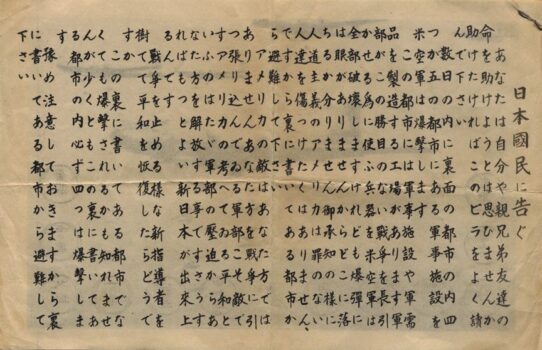 日本國民に告ぐ
あなたは自分や親兄弟友達の
命を助けようとは思ひませんか
助けたければこのビラをよく讀
んで下さい
数日の内に裏面の都市の内四
つか五つの都市の軍事施設を
米空軍は爆撃します
この都市には軍事施設や軍需
品を製造する工場があります軍
部がこの勝目のない戦争を長引
かせる為に使ふ兵器を米空軍は
全部破壊しますけれども爆弾に
は眼がありませんからどこに落
ちるか分りません御承知の様に
人道主義のアメリカは罪のない
人達を傷つけたくはありません
ですから裏に書いてある都市か
ら避難して下さい
アメリカの敵はあなた方では
ありませんあなた方を戦争に引
っ張り込んでゐる軍部こそ敵で
すアメリカの考へてゐる平和と
いふのはたゞ軍部の壓迫からあ
なた方を解放する事ですさうす
ればもっとよい新日本が出来上
るんです
戦争を止める様な新指導者を
樹てて平和を恢復したらどうで
すか
この裏に書いてある都市でな
くても爆撃されるかも知れませ
んが少くともこの裏に書いてあ
る都市の内必ず四つは爆撃しま
す
豫め注意しておきますから裏
に書いてある都市から避難して
下さい